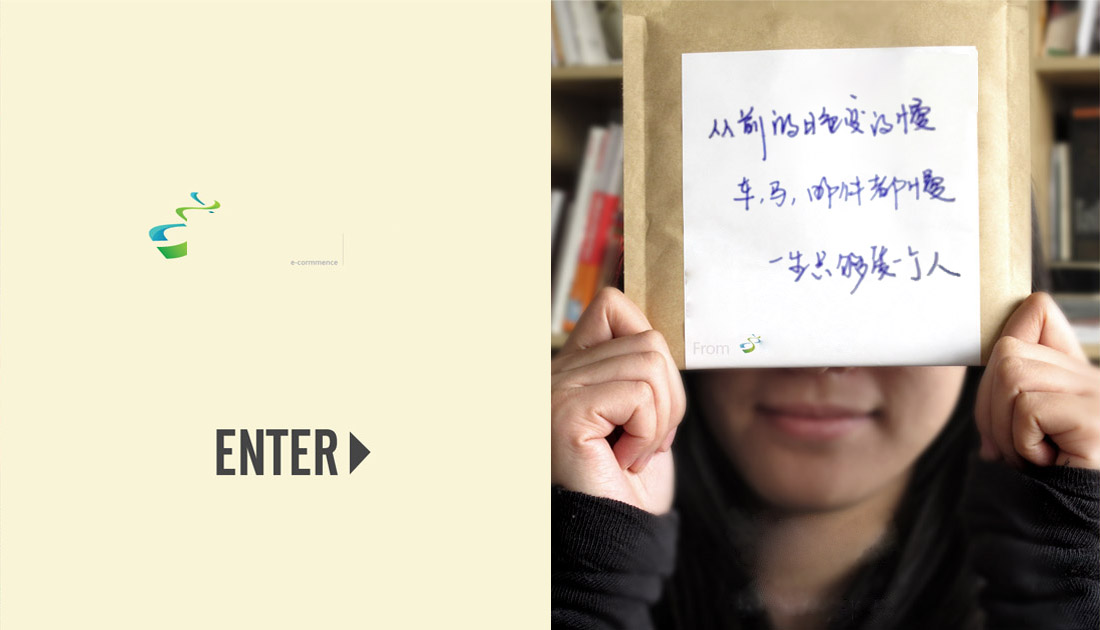 e-cormmence
ENTER
从前的日色变的慢
车,马,邮件都慢
一生只够爱一个人
From